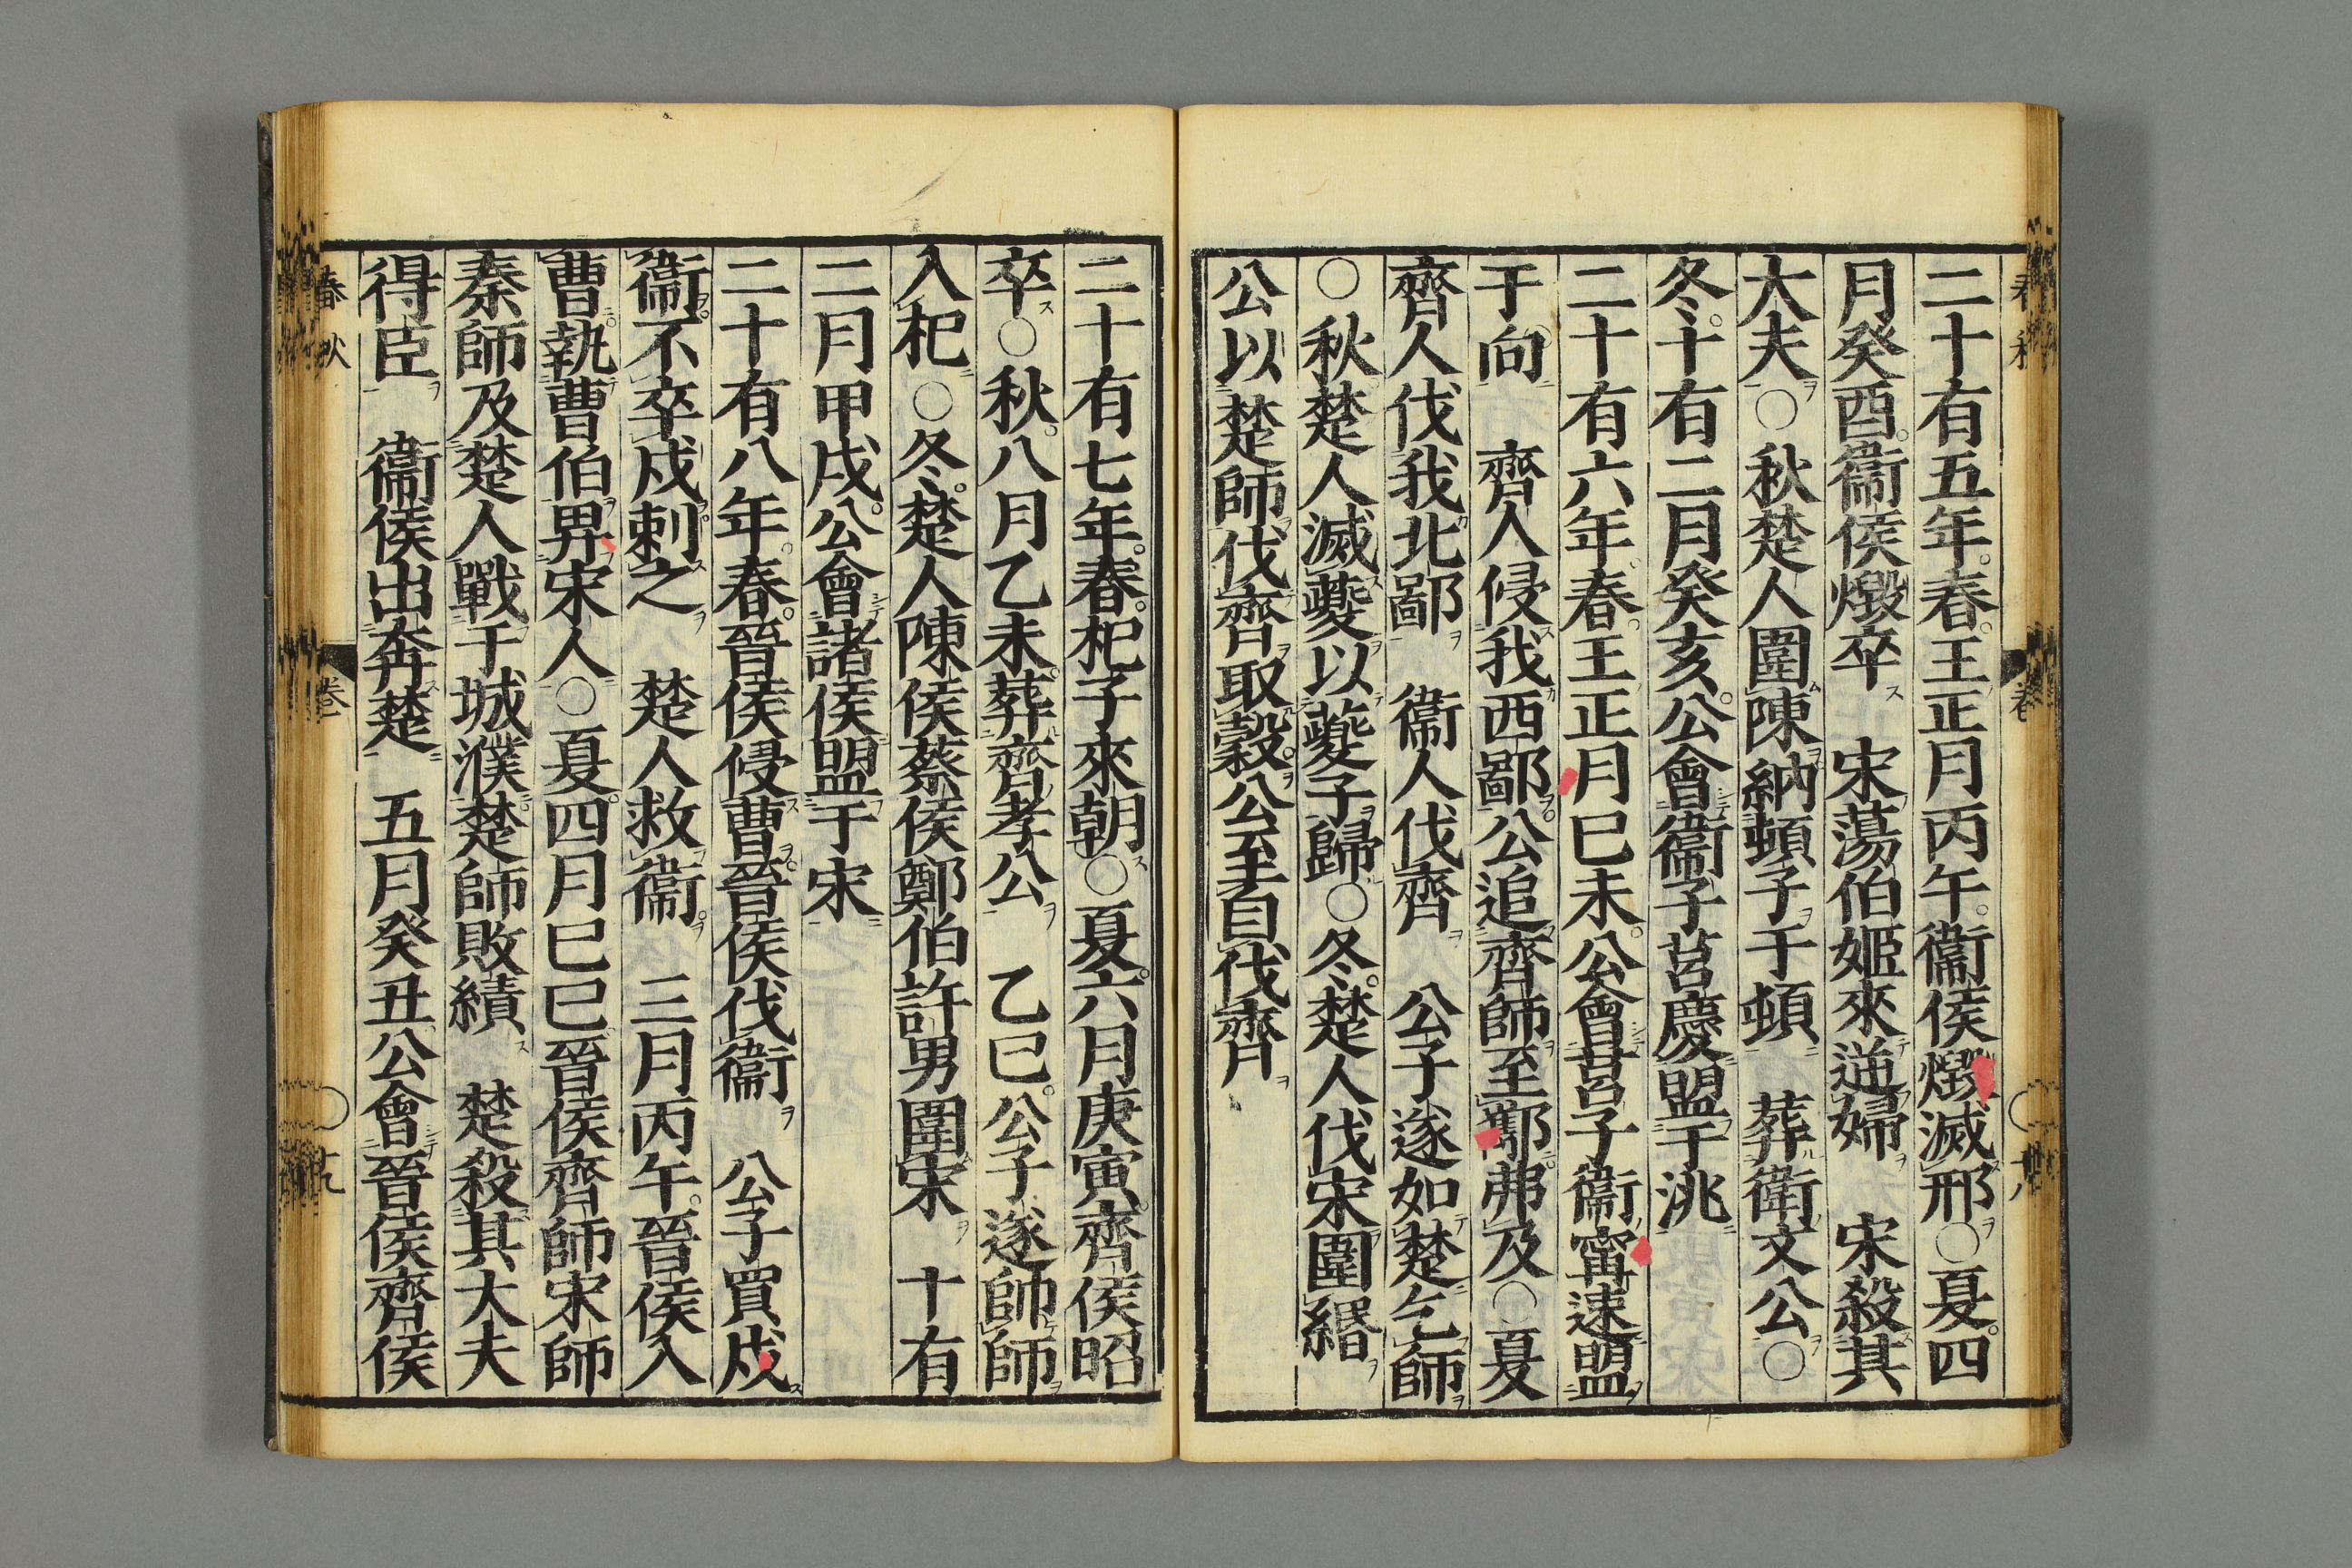 二十有五年春王正月丙午衞侯燬滅邢○夏四
月癸酉衞侯燬卒　宋蕩伯姬來逆婦　宋殺其
大夫○秋楚人圍陳納頓子于頓　葬衛文公○
冬十有二月癸亥公會衞子莒慶盟于洮
二十有六年春王正月巳未公會莒子衞甯速盟
于向　齊人侵我西鄙公追齊師至酅弗及○夏
齊人伐我北鄙　衞人伐齊　公子遂如楚乞師
○秋楚人滅夔以夔子歸○冬楚人伐宋圍緡
公以楚師伐齊取穀公至自伐齊
二十有七年春杞子來朝○夏六月庚寅齊侯昭
卒○秋八月乙未葬齊孝公　乙巳公子遂帥師
入杞○冬楚人陳侯蔡侯鄭伯許男圍宋　十有
二月甲戌公會諸侯盟于宋
二十有八年春晉侯侵曹晉侯伐衞　公子買戍
衞不卒戍刺之　楚人救衞　三月丙午晉侯入
曹執曹伯畀宋人○夏四月巳巳晉侯齊師宋師
秦師及楚人戰于城濮楚師敗績　楚殺其大夫
得臣　衞侯出奔楚　五月癸丑公會晉侯齊侯
春秋　卷　○十九